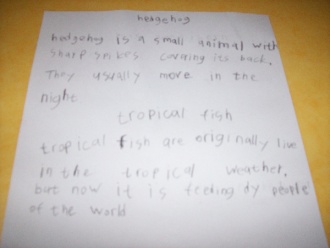 hedgehog
hedgehog is a small animal with
sharp spikes covering its back.
They usually move in the
night
tropical fish
tropical fish are originally live
in the tropical weather,
but now it is feeding dy people
of the world